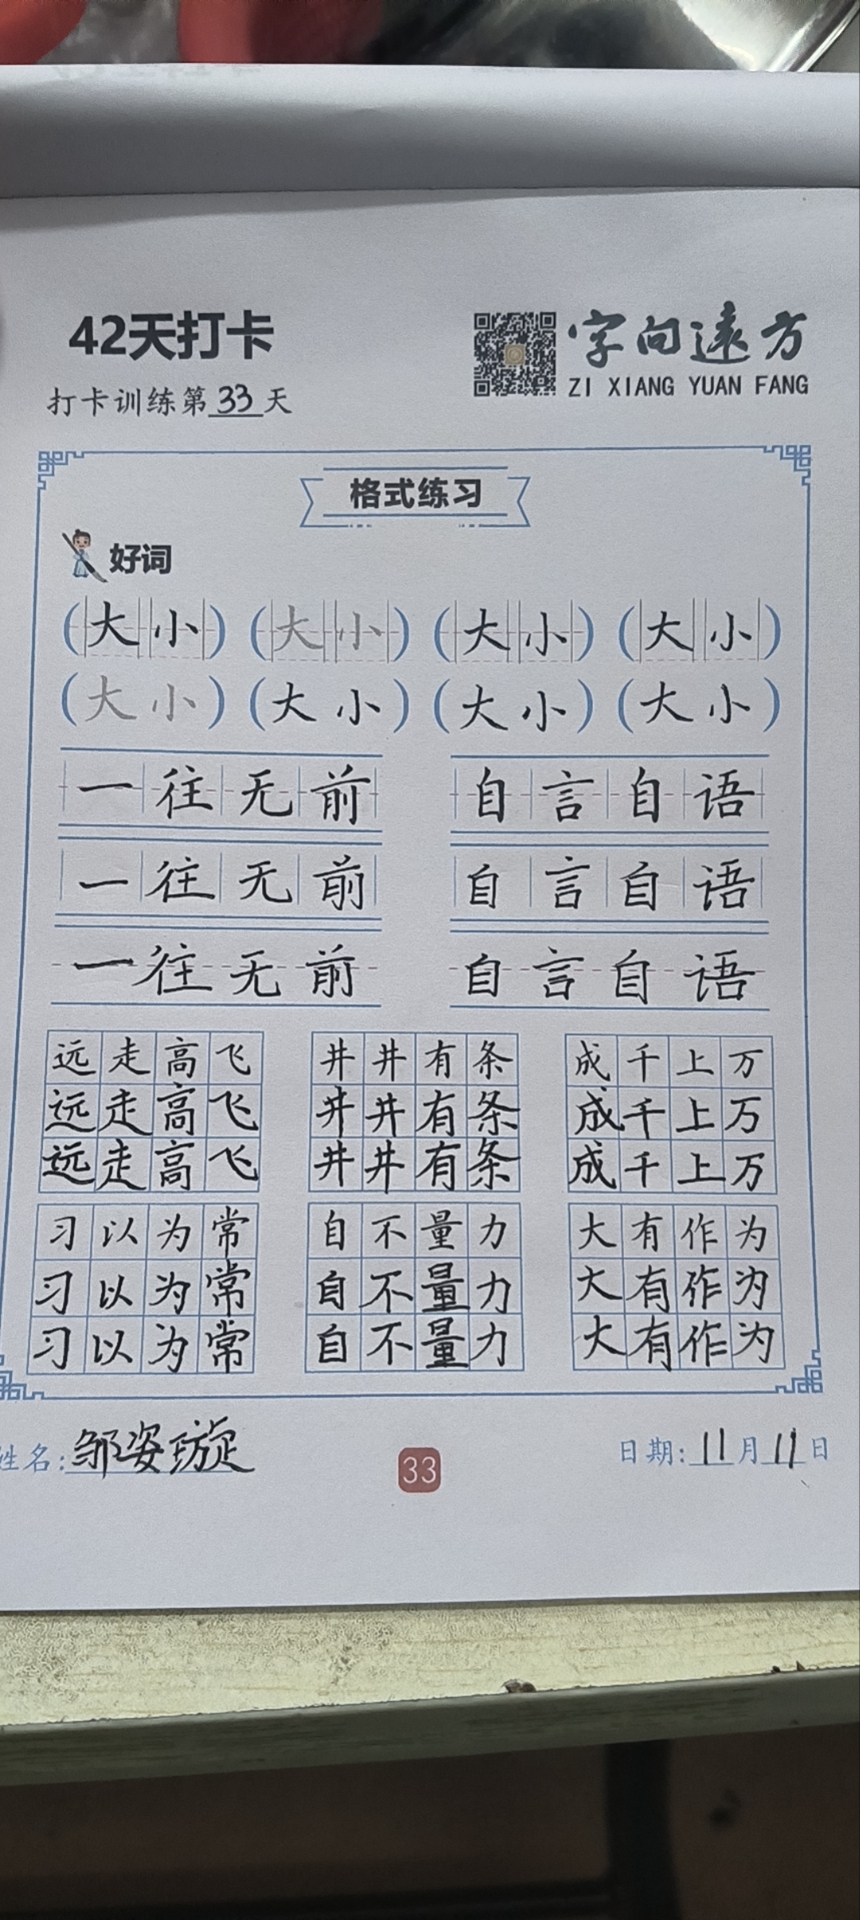 42天打卡
字向远方
ZI XIANG YUAN FANG
打卡训练第33天
格式练习
好词
(大小) (大小) (大小) (大小)
(大小) (大小) (大小) (大小)
一往无前 自言自语
一往无前 自言自语
一往无前 自言自语
远走高飞 井井有条 成千上万
远走高飞 井井有条 成千上万
远走高飞 井井有条 成千上万
习以为常 自不量力 大有作为
习以为常 自不量力 大有作为
习以为常 自不量力 大有作为
姓名:邹姿璇 33 日期:11月11日